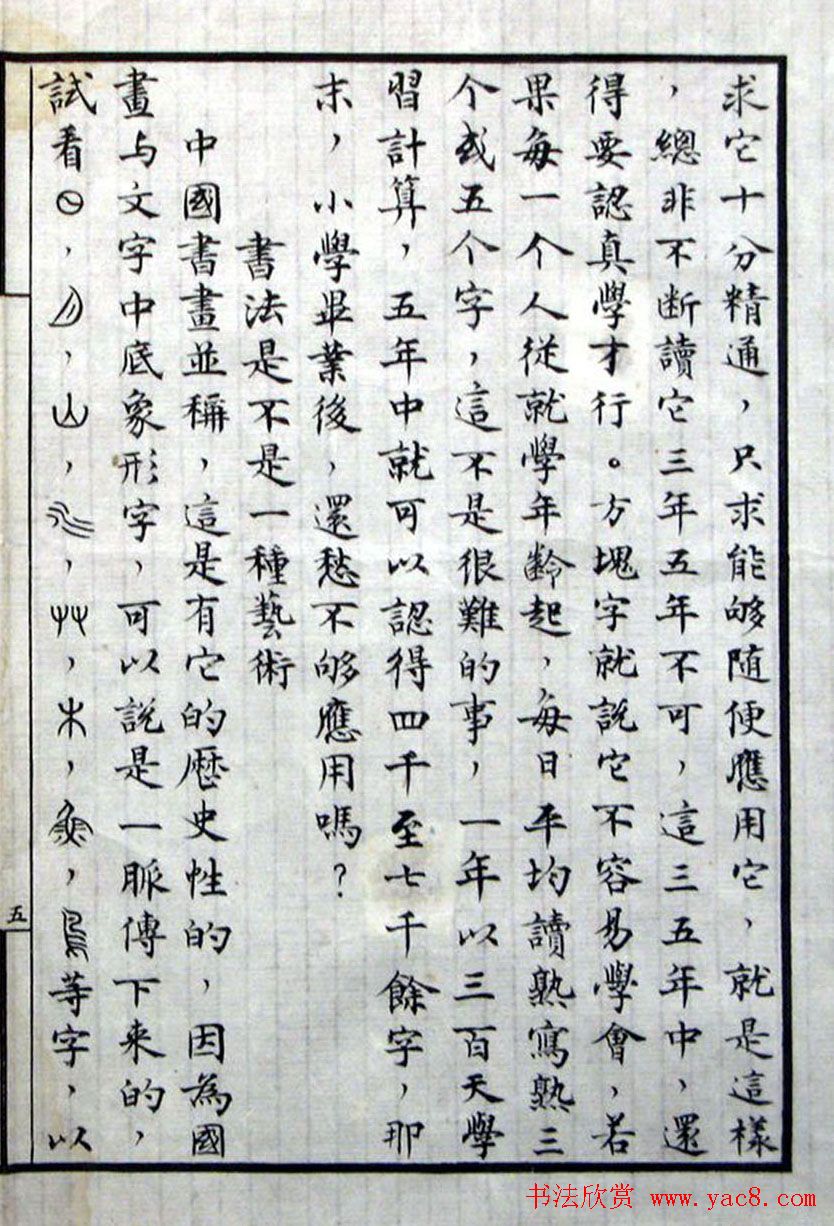 求它十分精通，只求能够随便應用它，就是這樣
，總非不断讀它三年五年不可，這三五年中，還
得要認真學才行。方塊字就説它不容易學會，若
果每一个人從就學年齡起，每日平均讀熟寫熟三
个或五个字，這不是很難的事，一年以三百天學
習計算，五年中就可以認得四千至七千餘字，那
末，小學畢業後，還愁不够應用嗎？
書法是不是一種藝術
中國書畫並稱，這是有它的歷史性的，因為國
畫与文字中底象形字，可以説是一脈傳下来的，
試看日，月，山，水，艸，木，魚，鳥等字，以
五
书法欣赏 www.yac8.com